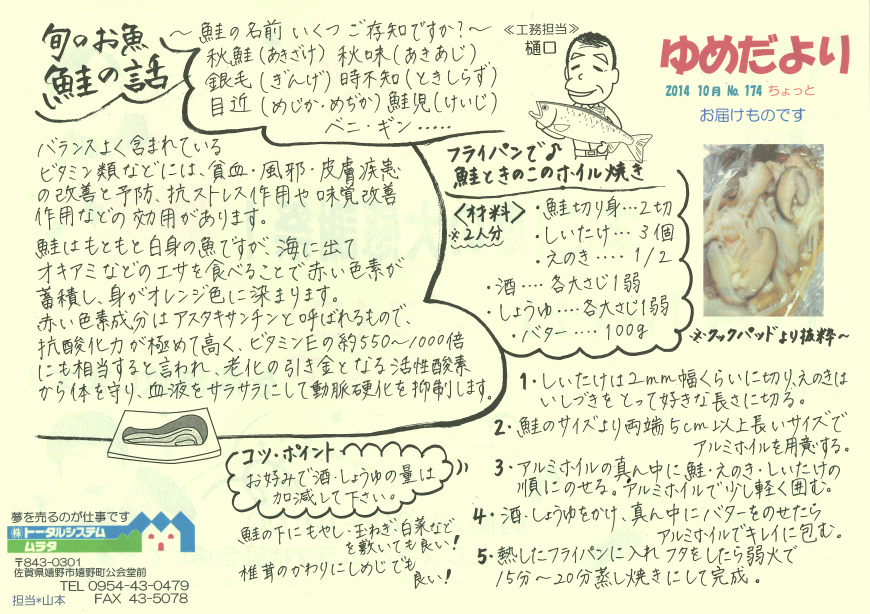 旬のお魚
鮭の話
～鮭の名前 いくつ ご存知ですか?～
秋鮭(あきざけ) 秋味(あきあじ)
銀毛(ぎんげ) 時不知(ときしらず)
目近(めじか・めぢか) 鮭児(けいじ)
ベニ・ギン・・・・・
≪工務担当≫
樋口
ゆめだより
2014 10月 No. 174 ちょっと
お届けものです
バランスよく含まれている
ビタミン類などには、貧血・風邪・皮膚疾患
の改善と予防、抗ストレス作用や味覚改善
作用などの効用があります。
鮭はもともと白身の魚ですが、海に出て
オキアミなどのエサを食べることで赤い色素が
蓄積し、身がオレンジ色に染まります。
赤い色素成分はアスタキサンチンと呼ばれるもので、
抗酸化力が極めて高く、ビタミンEの約550～1000倍
にも相当すると言われ、老化の引き金となる活性酸素
から体を守り、血液をサラサラにして動脈硬化を抑制します。
フライパンで♪
鮭ときのこのホイル焼き
<材料>
※2人分
・鮭切り身…2切
・しいたけ…3個
・えのき‥‥1/2
・酒‥‥各大さじ1弱
・しょうゆ‥‥各大さじ1弱
・バター‥‥100g
※クックパッドより抜粋～
1・しいたけは2mm幅くらいに切り、えのきは
いしづきをとって好きな長さに切る。
2・鮭のサイズより両端5cm以上長いサイズで
アルミホイルを用意する。
3・アルミホイルの真ん中に鮭・えのき・しいたけの
順にのせる。アルミホイルで少し軽く囲む。
4・酒・しょうゆをかけ、真ん中にバターをのせたら
アルミホイルでキレイに包む。
5・熱したフライパンに入れフタをしたら弱火で
15分～20分蒸し焼きにして完成。
コツ・ポイント
お好みで酒・しょうゆの量は
加減して下さい。
鮭の下にもやし・玉ねぎ・白菜など
を敷いても良い!
椎茸のかわりにしめじでも
良い!
夢を売るのが仕事です
㈱トータルシステム
ムラタ
〒843-0301
佐賀県嬉野市嬉野町公会堂前
TEL 0954-43-0479
FAX 43-5078
担当*山本